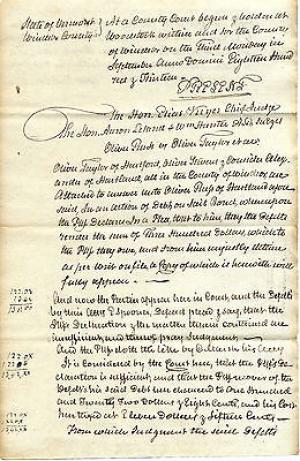 State of Vermont } At a County Court begun & holden at
Windsor County } Woodstock within and for the County
of Windsor on the Third Monday in
September Anno Domini Eighteen Hund
red & Thirteen
PRESENT
The Hon. Elias Keyes Chief Judge
The Hon. Aaron Leland & Wm Hunter Asst Judges
Oliver Rush vs Oliver Taylor et als
Oliver Taylor of Hartford, Oliver & Consider
of Hartland, all in the County of Windsor, are
Attached to answer unto Oliver of Hartland afore
said, In an action of Debt, on said Bond, whereupon
the Plff Declares In a Plea, that to him, they the Defts
render the sum of Three Hundred Dollars, which to
the Plff they owe, and from him unjustly detain
as per writ on file a Copy of which is herewith will
fully appear
And now the Parties appear here in Court, and the Defts
by their Atty Spooner, Defend plead & say, that the
Plffs Declaration & the matter therein contained are
insufficient, and thereof pray Judgment
And the Plff doth the like by his Atty
It is Considered by the Court here, that the Plffs De
claration is sufficient, and that the Plff recover of the
Defts his said Debt here chanced to One hundred
and Twenty Two Dollars & Eight Cents, and his Cost
taxed at Eleven Dollars & Fifteen Cents
From which Judgment the said Defts
122.08